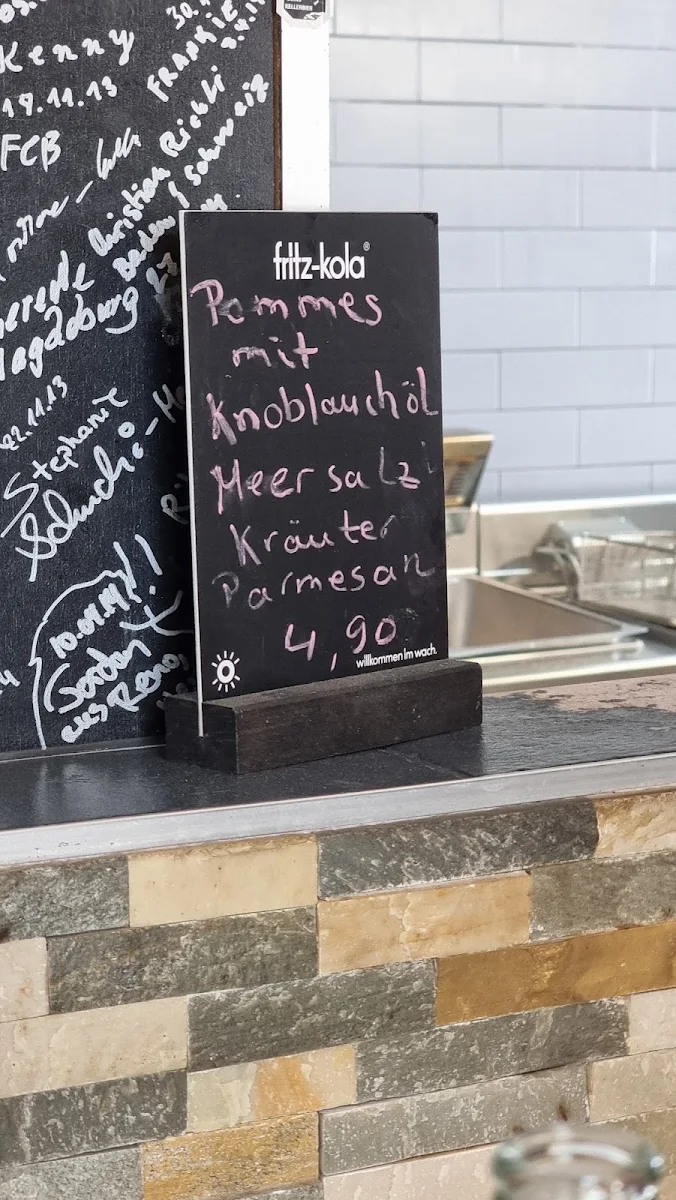 Kenny
17.11.13
FCB
FRANKIE
Christian Richli
Baden
Schweiz
Magdeburg
22.11.13
Stephanie
10.01.14!!
Gordon
aus Rena
fritz-kola®
Pommes
mit
Knoblauchöl
Meersalz
Kräuter
Parmesan
4,90
willkommen im wach.